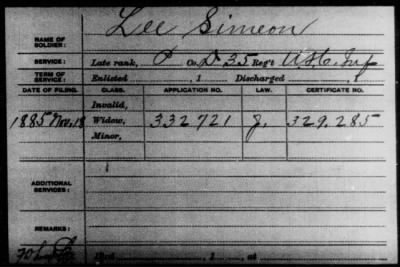 Lee Simeon
NAME OF SOLDIER:
SERVICE: Late rank, P Co. D. 35 Reg't U.S.C. Inf
TERM OF SERVICE: Enlisted , 1 Discharged , 1
DATE OF FILING. CLASS. APPLICATION NO. LAW. CERTIFICATE NO.
Invalid,
1885 Nov. 18 Widow, 332721 J. 329.285
Minor,
ADDITIONAL SERVICES:
REMARKS:
Died , 1 , at